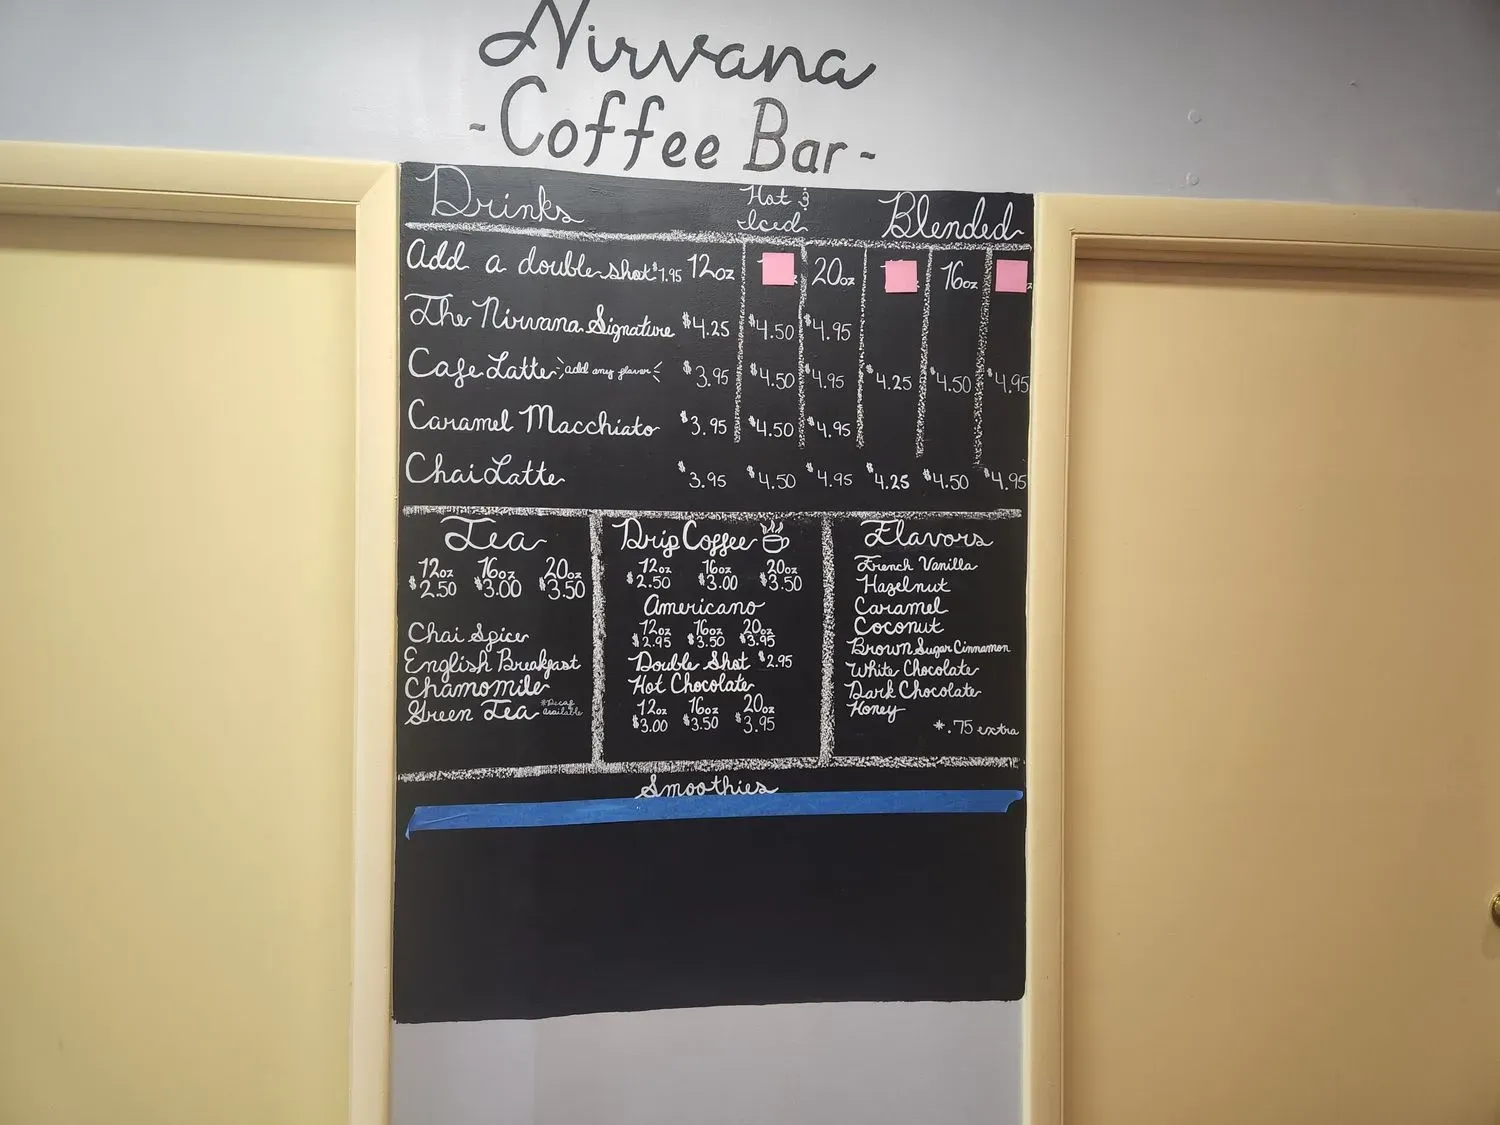 Nirvana
- Coffee Bar -
Drinks Hot & Iced Blended
Add a double shot $1.95 12oz 20oz 16oz
The Nirvana Signature $4.25 $4.50 $4.95
Cafe Latte add any flavor $3.95 $4.50 $4.95 $4.25 $4.50 $4.95
Caramel Macchiato $3.95 $4.50 $4.95
Chai Latte $3.95 $4.50 $4.95 $4.25 $4.50 $4.95
Tea
12oz 16oz 20oz
$2.50 $3.00 $3.50
Chai Spice
English Breakfast
Chamomile
Green Tea *Decaf available
Drip Coffee
12oz 16oz 20oz
$2.50 $3.00 $3.50
Americano
12oz 16oz 20oz
$2.95 $3.50 $3.95
Double Shot $2.95
Hot Chocolate
12oz 16oz 20oz
$3.00 $3.50 $3.95
Flavors
French Vanilla
Hazelnut
Caramel
Coconut
Brown Sugar Cinnamon
White Chocolate
Dark Chocolate
Honey
*.75 extra
Smoothies